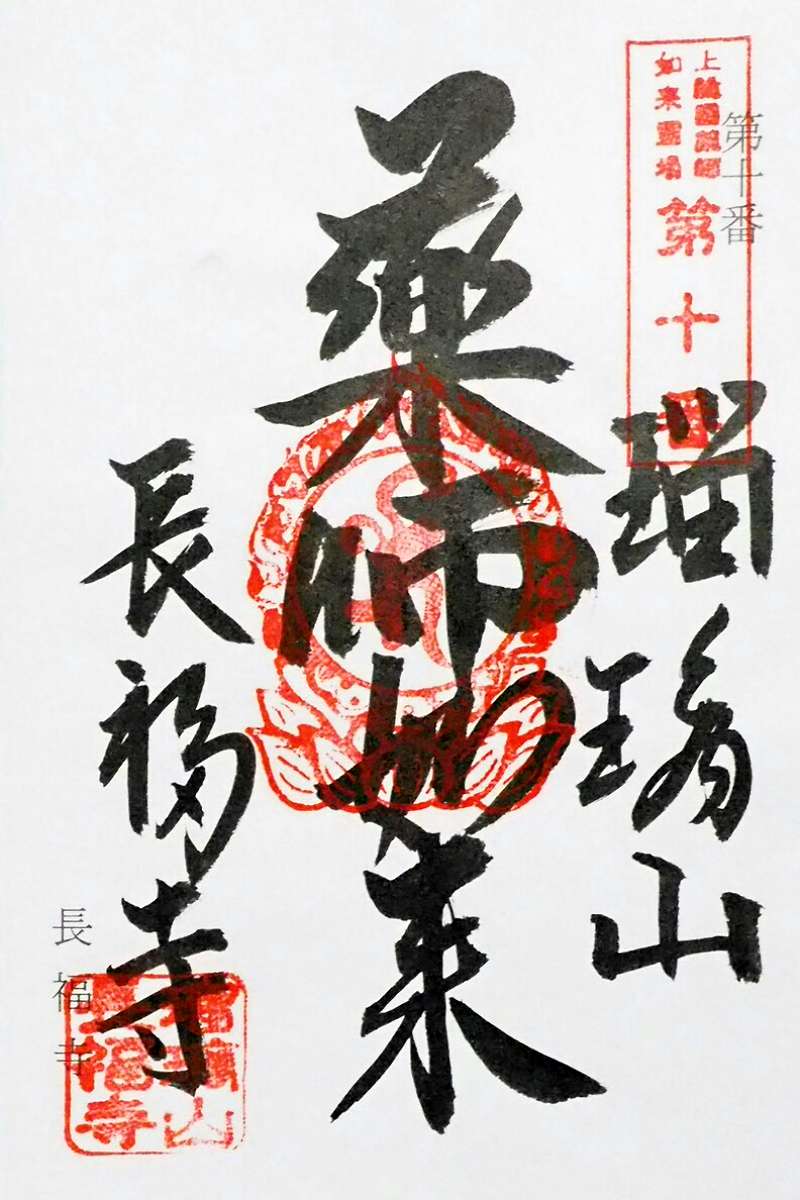 上総國薬師
如来霊場
第十番
第十番
瑠璃山
薬師如来
長福寺
長福寺
瑠璃山
長福寺